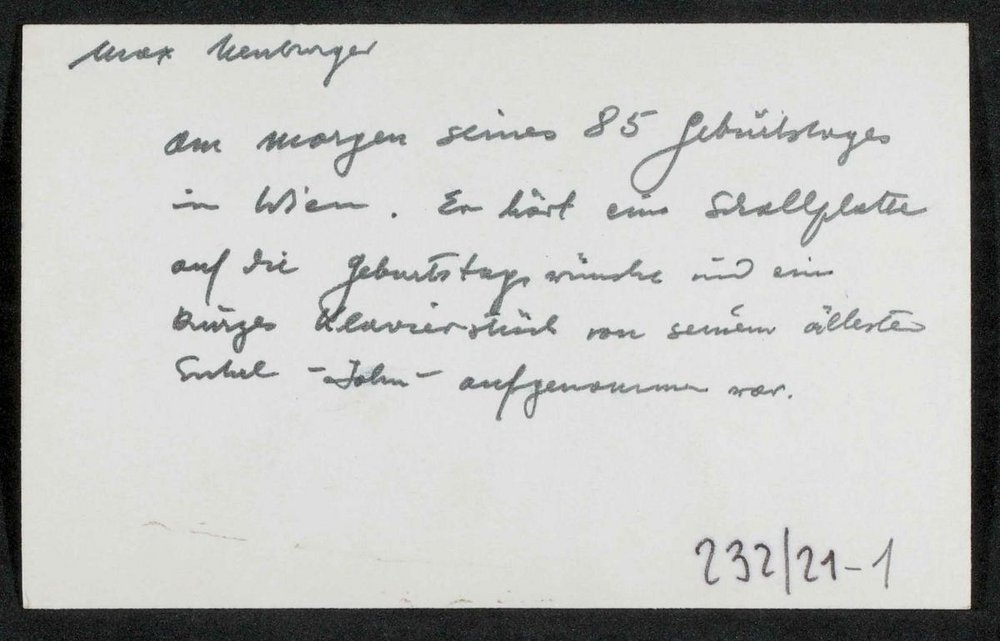 Max Neuburger
am Morgen seines 85 Geburtstages
in Wien. Er hört eine Schallplatte
auf die Geburtstagswünsche und ein
kurzes Klavierstück von seinem ältesten
Enkel -John- aufgenommen war.
232/21-1